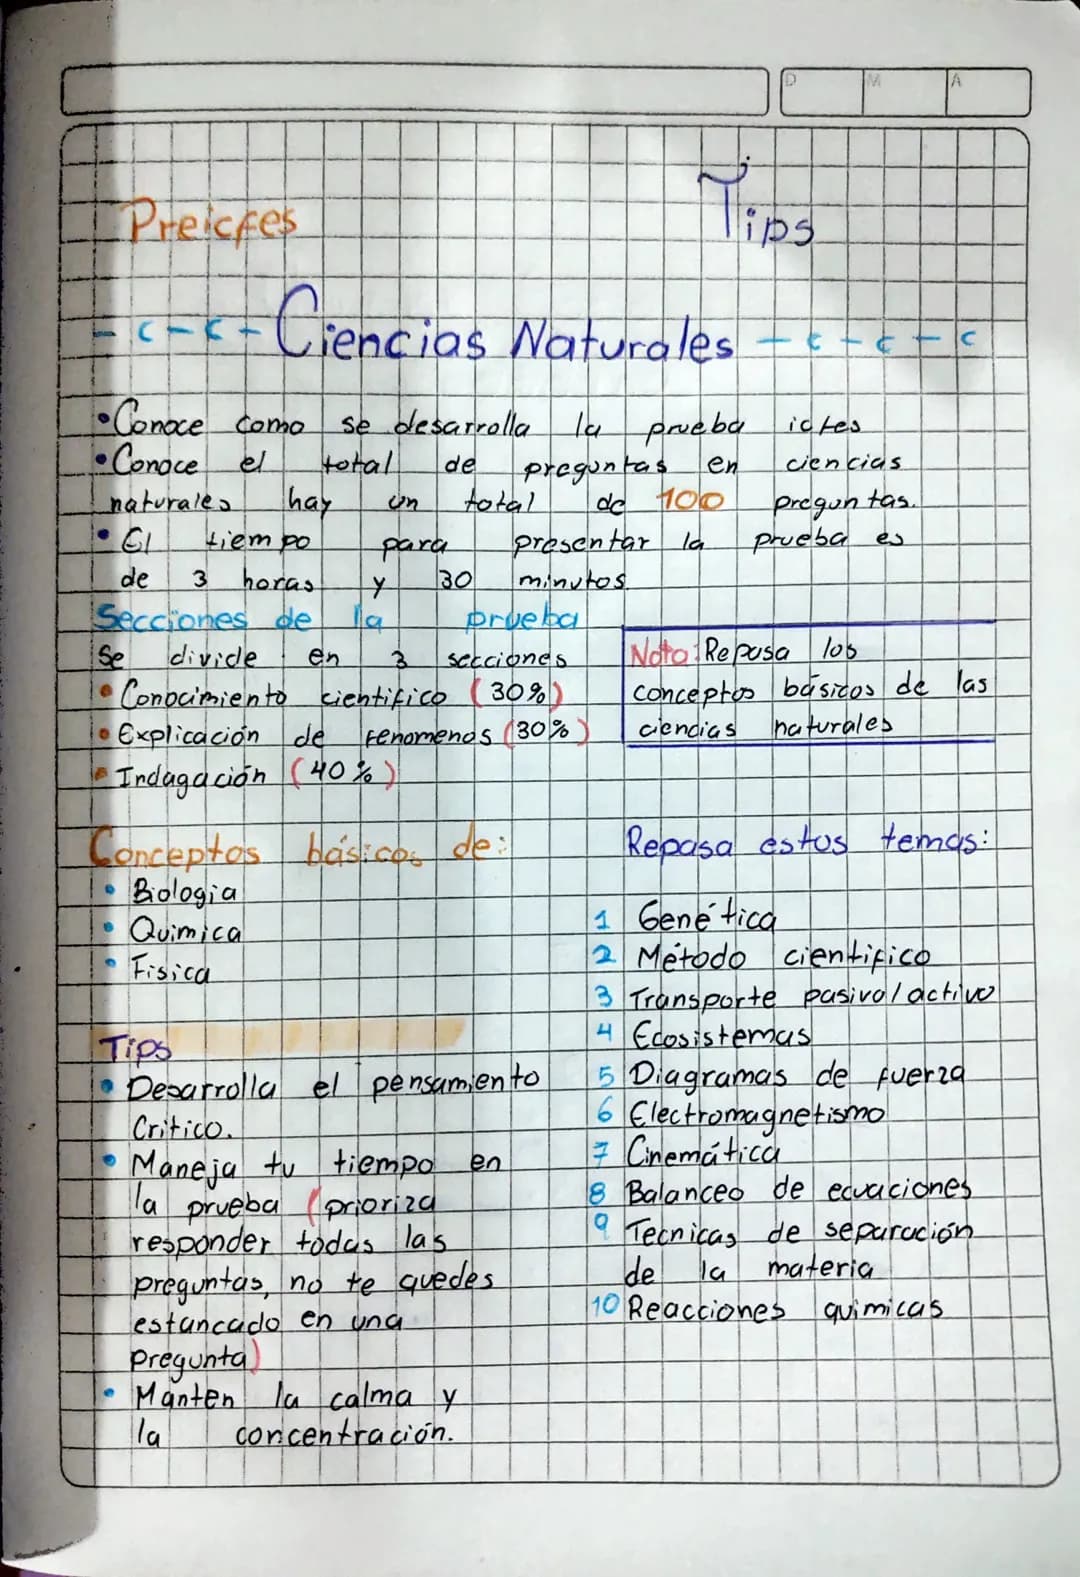 D M A
Preicfes
Tips
Ciencias Naturales
• Conoce como se desarrolla la prueba icfes
• Conoce el total de preguntas en ciencias
naturales hay un total de 100 preguntas.
• El tiempo para presentar la prueba es
de 3 horas y 30 minutos
Secciones de la prueba
Se divide en 3 secciones
• Conocimiento cientifico (30%)
• Explicación de fenomenos (30%)
• Indagación (40%)
Nota: Repasa los
conceptos básicos de las
ciencias naturales
Conceptos básicos de:
• Biologia
• Quimica
• Fisica
Tips
• Desarrolla el pensamiento
Critico.
• Maneja tu tiempo en
la prueba (prioriza
responder todas las
preguntas, no te quedes
estancado en una
pregunta)
• Manten la calma y
la concentración.
Repasa estos temas:
1 Genética
2 Método cientifico
3 Transporte pasivo/activo
4 Ecosistemas
5 Diagramas de fuerza
6 Electromagnetismo
7 Cinemática
8 Balanceo de ecuaciones
9 Tecnicas de separación
de la materia
10 Reacciones quimicas